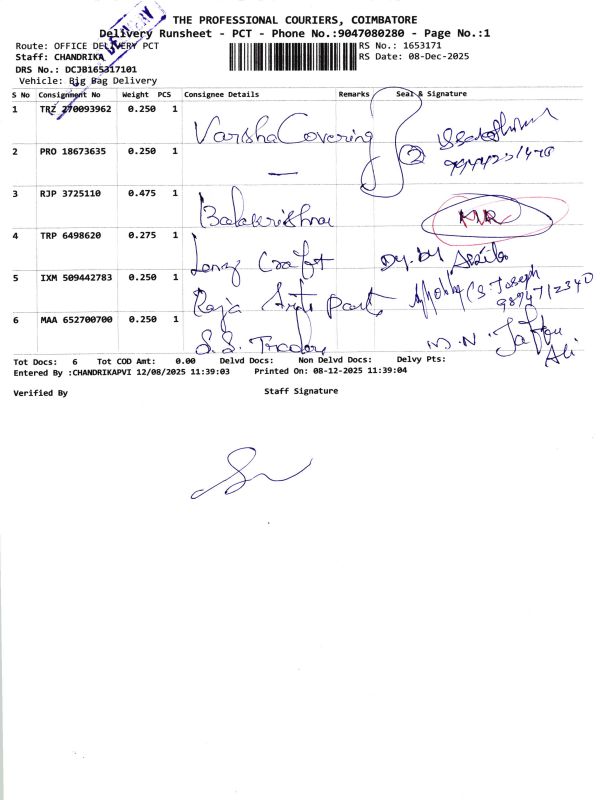 THE PROFESSIONAL COURIERS, COIMBATORE
Delivery Runsheet - PCT - Phone No.:9047080280 - Page No.:1
Route: OFFICE DELIVERY PCT
RS No.: 1653171
Staff: CHANDRIKA
RS Date: 08-Dec-2025
DRS No.: DCJB165317101
Vehicle: Big Bag Delivery
DELIVERY
S No Consignment No Weight PCS Consignee Details Remarks Seal & Signature
1 TRZ 270093962 0.250 1 Varsha Covering
2 PRO 18673635 0.250 1 — 2
3 RJP 3725110 0.475 1 Balakrishna
4 TRP 6498620 0.275 1
5 IXM 509442783 0.250 1 Raja Joseph
9894712340
6 MAA 652700700 0.250 1 S.S. Traders Ali
Tot Docs: 6 Tot COD Amt: 0.00 Delvd Docs: Non Delvd Docs: Delvy Pts:
Entered By :CHANDRIKAPVI 12/08/2025 11:39:03 Printed On: 08-12-2025 11:39:04
Verified By Staff Signature